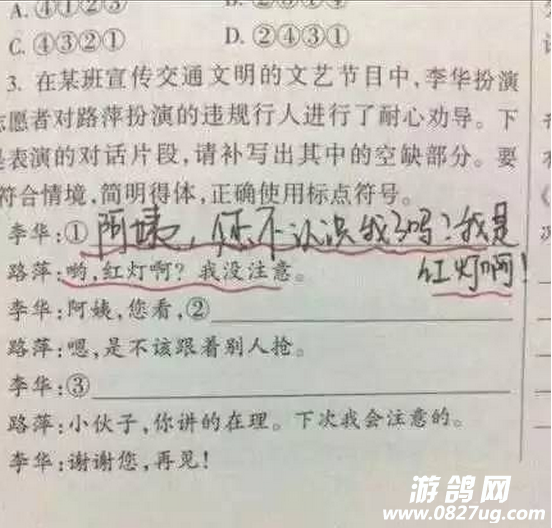 A.④①②③
C.④③②①
D.②④③①
3. 在某班宣传交通文明的文艺节目中,李华扮演
志愿者对路萍扮演的违规行人进行了耐心劝导。下
是表演的对话片段,请补写出其中的空缺部分。要
符合情境,简明得体,正确使用标点符号。
李华:①阿姨,你不认识我了吗?我是
红灯啊!
路萍:哟,红灯啊?我没注意。
李华:阿姨,您看,②
路萍:嗯,是不该跟着别人抢。
李华:③
路萍:小伙子,你讲的在理。下次我会注意的。
李华:谢谢您,再见!
游鸽网
www.0827ug.com